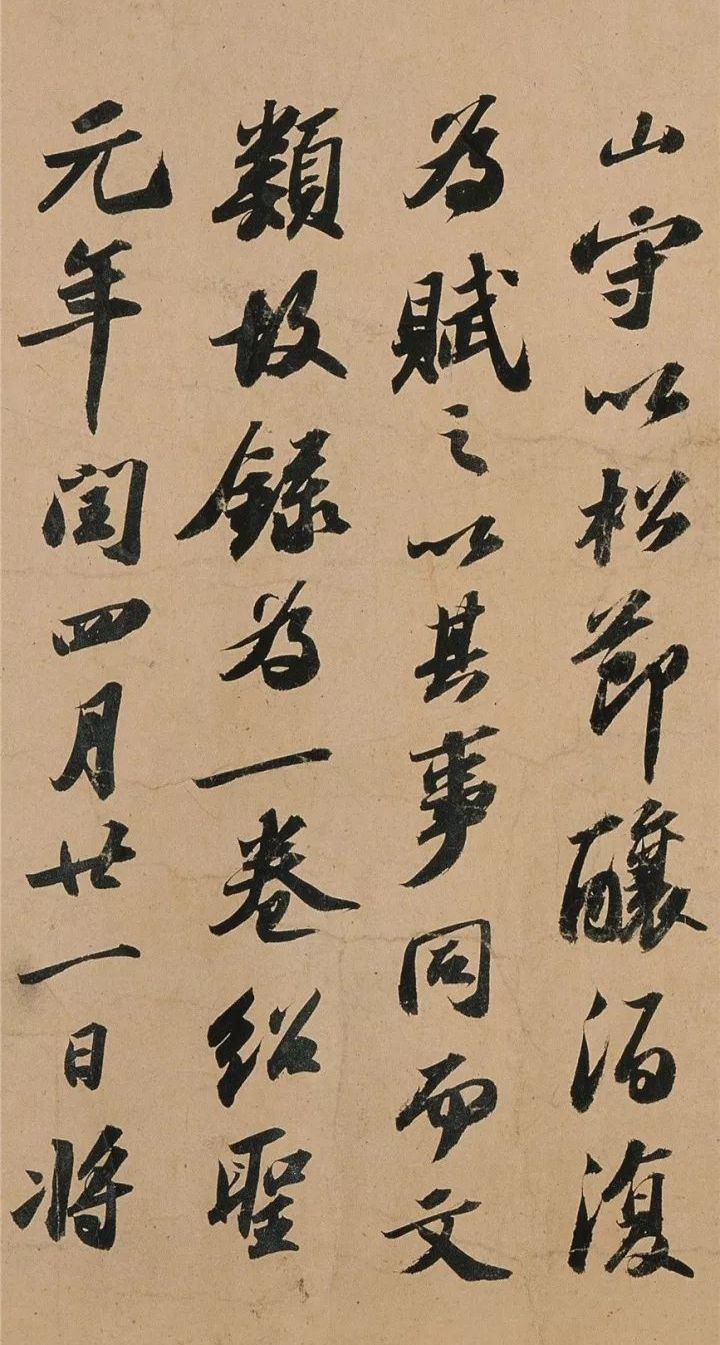 山守以松節釀酒復
為賦之以其事同而文
類故錄為一卷紹聖
元年閏四月廿一日將